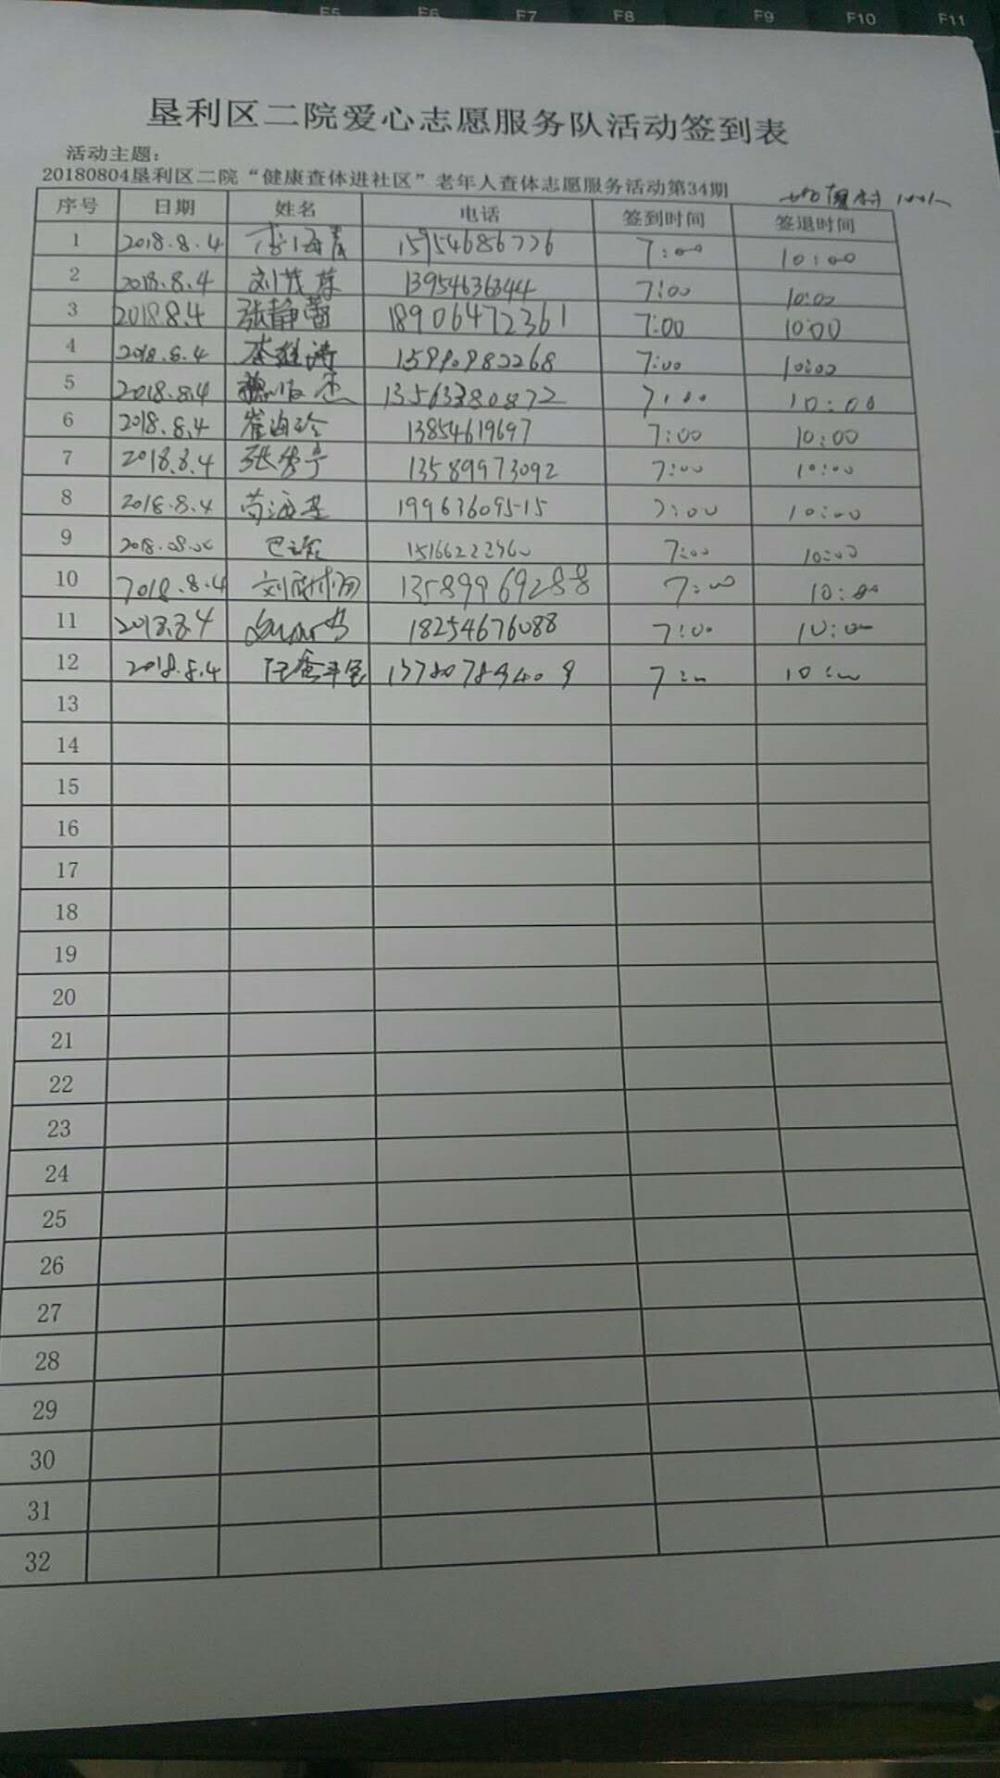 F5 F6 F7 F8 F9 F10 F11
垦利区二院爱心志愿服务队活动签到表
活动主题：
20180804垦利区二院“健康查体进社区”老年人查体志愿服务活动第34期
序号 日期 姓名 电话 签到时间 签退时间
1 2018.8.4 李海青 15954686726 7:00 10:00
2 2018.8.4 刘茂荣 13954636344 7:00 10:00
3 2018.8.4 张静蕾 18906472361 7:00 10:00
4 2018.8.4 7:00 10:00
5 2018.8.4 13563380872 7:00 10:00
6 2018.8.4 崔海玲 13854619697 7:00 10:00
7 2018.8.4 13589973092 7:00 10:00
8 2018.8.4 19963609515 7:00 10:00
9 7:00 10:00
10 2018.8.4 13589969288 7:00 10:00
11 2018.8.4 18254676088 7:00 10:00
12 2018.8.4 7:00 10:00
13
14
15
16
17
18
19
20
21
22
23
24
25
26
27
28
29
30
31
32